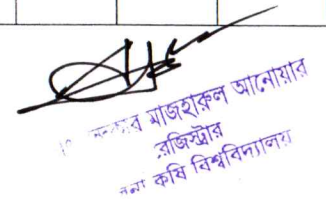 মাজহারুল আনোয়ার
রেজিস্ট্রার
কৃষি বিশ্ববিদ্যালয়